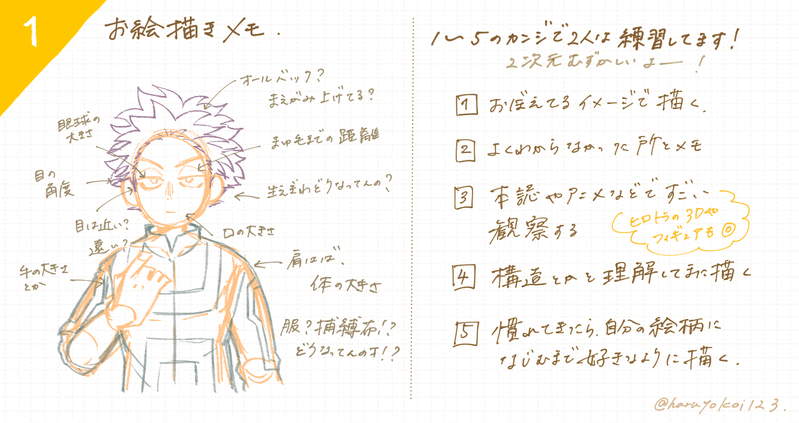 1
お絵描きメモ.
オールバック?
まえがみ上げてる?
眼球の
大きさ
まゆ毛までの距離
目の
角度
生えぎわどうなってんの?
目は近い?
遠い?
口の大きさ
手の大きさ
とか
肩はば、
体の大きさ
服?捕縛布!?
どうなってんのす!?
1〜5のカンジで2人は練習してます!
2次元むずかしいよー!
1 おぼえてるイメージで描く.
2 よくわからなかった所をメモ
3 本誌やアニメなどですごい
観察する
ヒロトラの3Dや
フィギュアも◎
4 構造とかを理解してまた描く
5 慣れてきたら、自分の絵柄に
なじむまで好きなように描く.
@haruyokoi123.